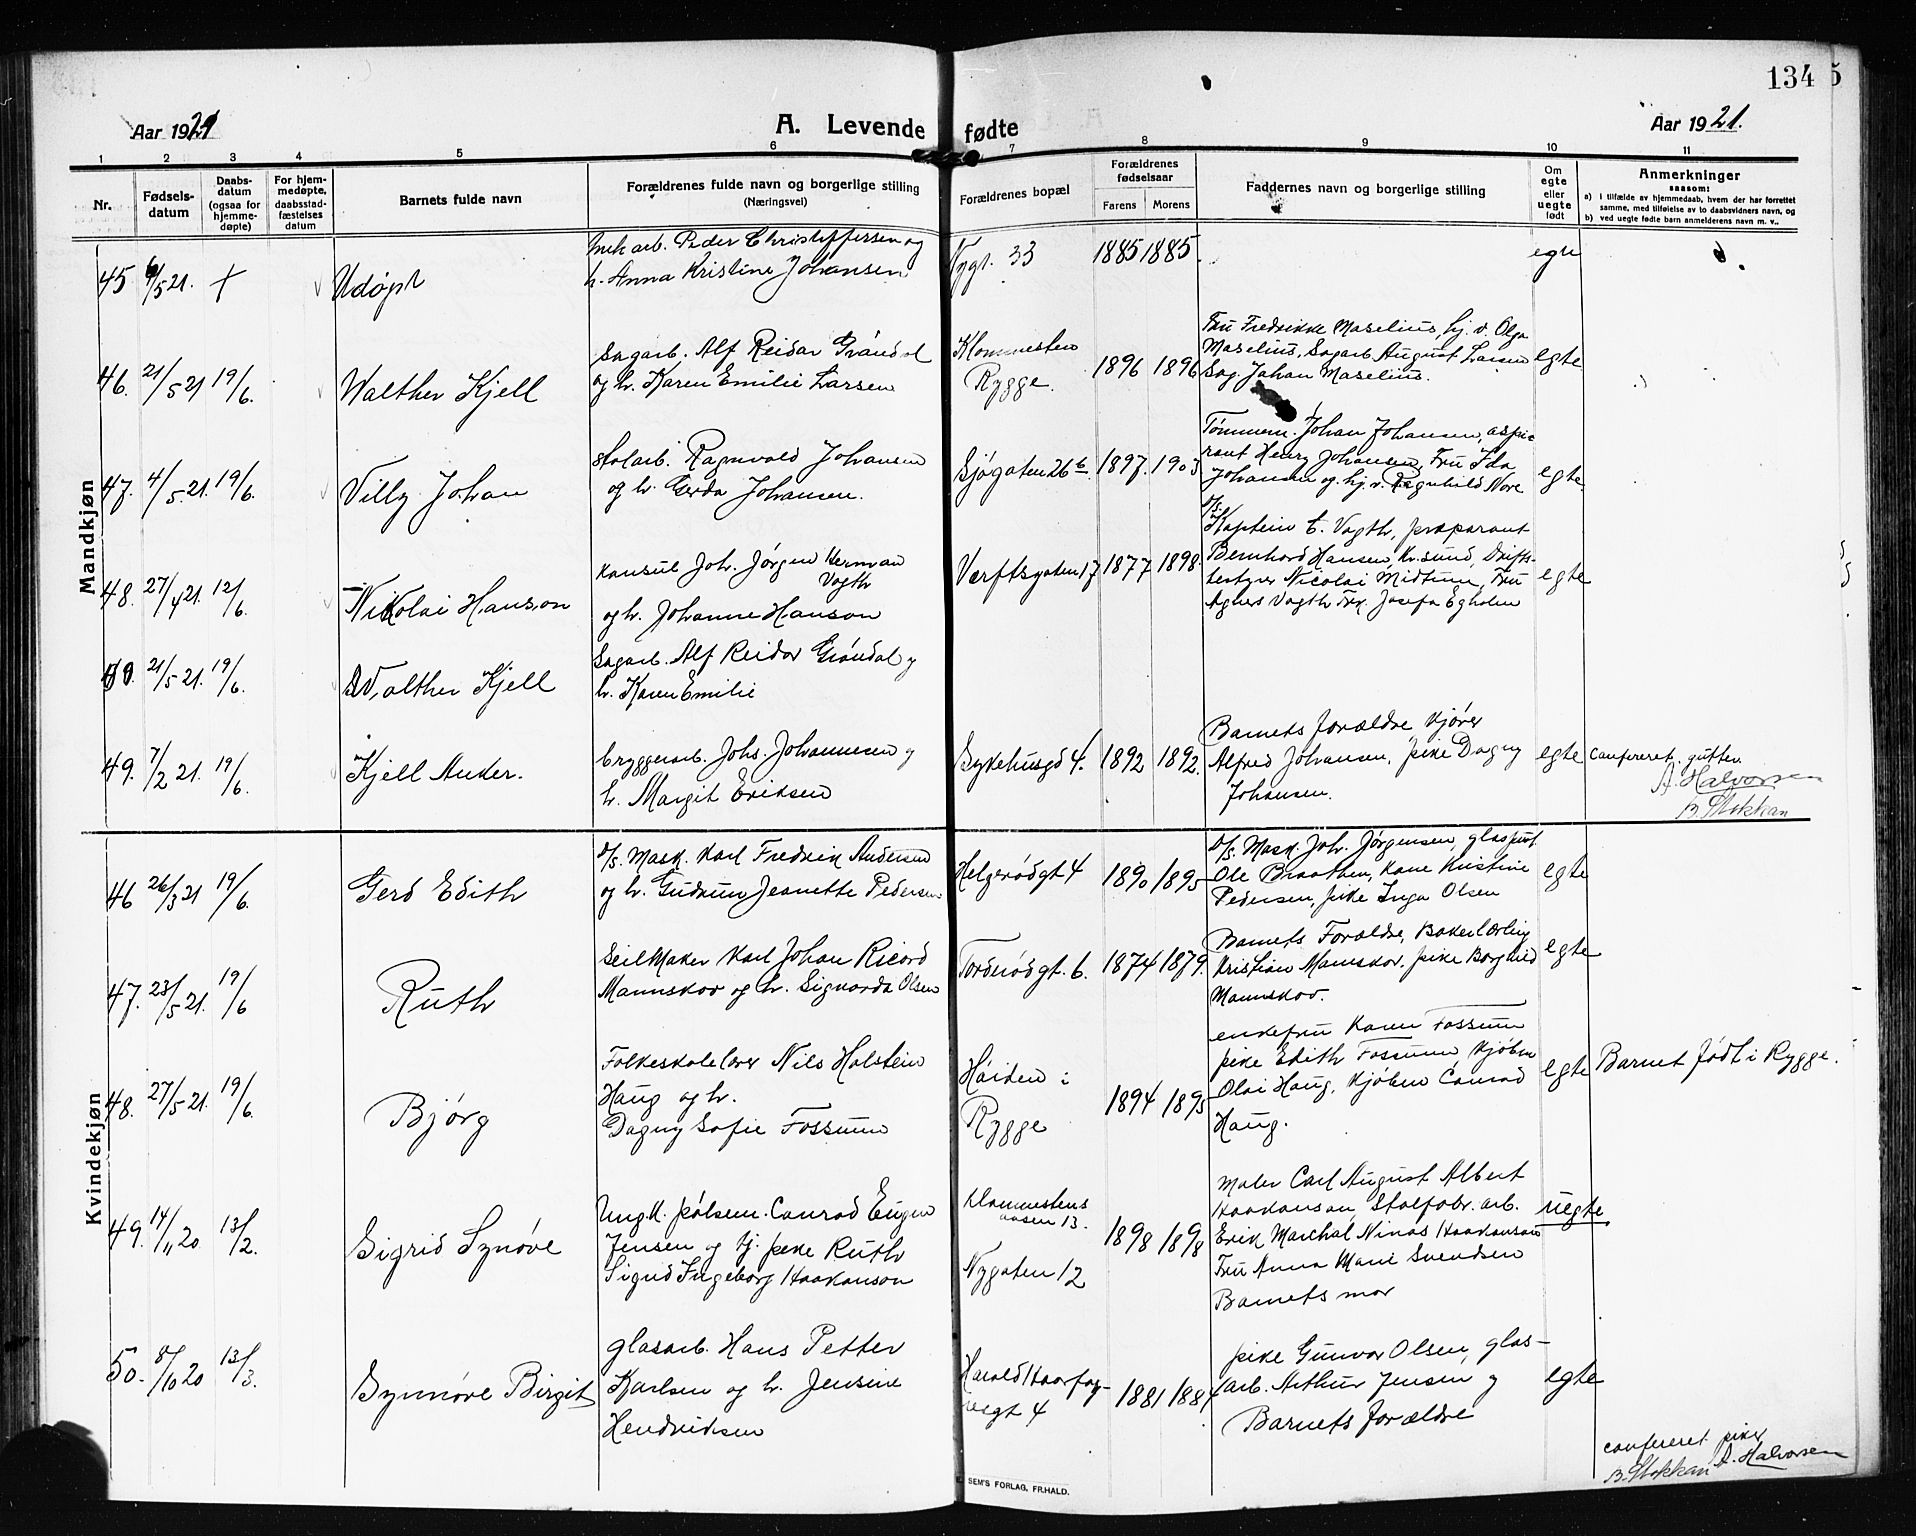 134
Aar 1921
A. Levende fødte
Aar 1921.
1 2 3 4 5 6 7 8 9 10 11
Nr.
Fødsels-
datum
Daabs-
datum
(ogsaa for
hjemme-
døpte)
For hjem-
medøpte,
daabsstad-
fæstelses
datum
Barnets fulde navn
Forældrenes fulde navn og borgerlige stilling
(Næringsvei)
Forældrenes bopæl
Forældrenes
fødselsaar
Farens Morens
Faddernes navn og borgerlige stilling
Om
egte
eller
uegte
født
Anmerkninger
saasom:
a) i tilfælde av hjemmedaab, hvem der har forrettet
samme, med tilføielse av to daabsvidners navn, og
b) ved uegte fødte barn anmelderens navn m. v..
Mandkjøn
45 6/5 21. + Udøpt
Mek arb. Peder Christoffersen og
h. Anna Kristine Johansen
Nygt. 33
1885 1885.
egte
46. 21/5 21 19/6. Walther Kjell
Sagarb. Alf Reidar Gröndal
og h. Karen Emilie Larsen
Klommesten
Rygge.
1896 1896
Fru Fredrikke Maselius, hj. v. Olga
Maselius, Sagarb August Larsen
Sag. Johan Maselius.
egte
47. 4/5. 21. 19/6. Villy Johan
Stolarb. Ragnvald Johansen
og h. Gerda Johansen.
Sjøgaten 26 b.
1897. 1903
Tømmerm. Johan Johansen, aspi-
rant Henry Johansen, Fru Ida
Johansen og hj. v. Ragnhild Nore
egte.
48. 27/4 21. 12/6. Nikolai Hanson
Konsul Joh. Jørgen Herman
Vogth
og h. Johanne Hanson
Værftsgaten 17
1877 1898.
D/S. Kaptein C. Vogth, præparant
Bernhard Hansen, Kr.sund, Drifts-
bestyrer Nicolai Midtun, Fru
Agnes Vogth Frk. Josefa Egholm
egte
21/5 21. 19/6. Walther Kjell
Sagarb. Alf Reidar Gröndal y
h. Karen Emilie
49. 7/2 21. 19/6. Kjell Anker.
bryggerarb. Johs. Johannesen y
h. Margit Eriksen
Sykehusgd 4.
1892 1892.
Barnets forældre, kjører
Alfred Johansen, pike Dagny
Johansen.
egte
Confereret, gutter.
A. Halvorsen
B. Stokkan
Kvindekjøn
46 26/3 21 19/6. Gerd Edith
D/S. Mask. Karl Fredrik Andersen
og h. Gudrun Jeanette Pedersen
Helgerødgt 4
1890 1895
D/S. Mask. Joh. Jørgensen, glaspust
Ole Braathen, Kone Kristine
Pedersen, pike Inga Olsen
egte
47. 23/5 21. 19/6 Ruth
Seilmaker Karl Johan Ricard
Mannskov og h. Signarda Olsen
Tordnødgt. 6.
1874 1879.
Barnets Forældre, Bakerlærling
Kristian Mannskov, pike Borghild
Mannskov.
egte
48. 27/5 21. 19/6. Bjørg
Folkeskolelærer Nils Holstein
Haug og h.
Dagny Sofie Fossum
Høiden i
Rygge
1894 1895
enkefru Karen Fossum
pike Edith Fossum kjøbm
Olai Haug, kjøbm Conrad
Haug.
egte
Barnet født i Rygge.
49. 14/11 20 13/2. Sigrid Synøve
Ungk. pølsem. Conrad Eugen
Jensen og hj. pike Ruth
Sigrid Ingeborg Haakanson
Klommestens
aasen 13.
Nygaten 12
1898 1898
Maler Carl August Albert
Haakanson, Stolfabr. arb.
Erik Marchal Ninas Haakanson
Fru Anna Marie Svendsen
Barnets mor
uegte
50. 8/10 20 13/3. Synnøve Birgit
glasarb. Hans Petter
Karlsen og h. Jensine
Hendriksen
Harald Haarfag-
resgt 4
1881 1884
pike Gunvor Olsen, glas-
arb. Arthur Jensen y
Barnets forældre
egte
confereret, piker
B. Stokkan A. Halvorsen
SEM'S FORLAG, FR.HALD.